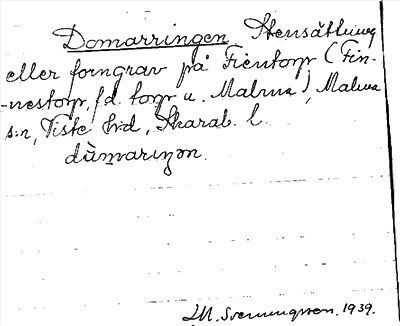 Domarringen Stensättning
eller forngrav på Fientorp (Fin-
-nestorp, f.d. torp u. Malma), Malma
s:n, Viste h:d, Skarab. l.
dùmarıŋən.
M. Svenningsson. 1939.